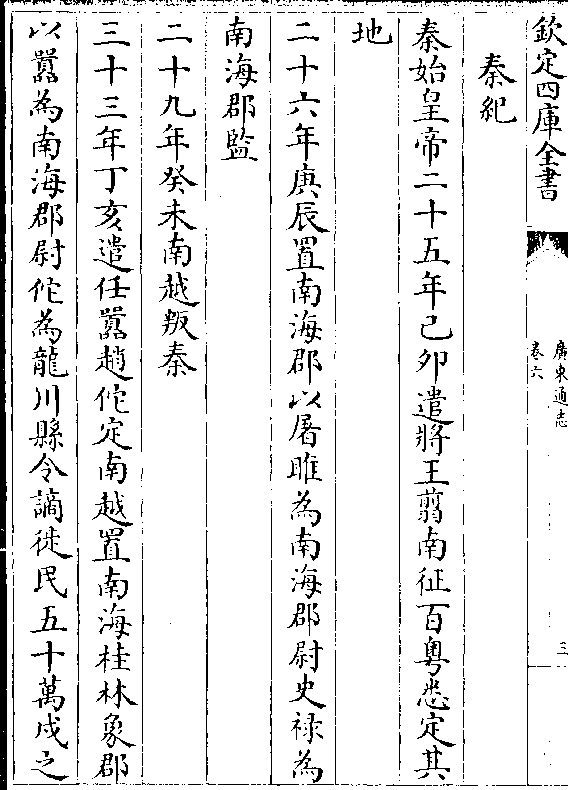 欽定四庫全書
廣東通志
卷六
三
秦紀
秦始皇帝二十五年己卯遣將王翦南征百粤悉定其
地
二十六年庚辰置南海郡以屠睢為南海郡尉史禄為
南海郡監
二十九年癸未南越叛秦
三十三年丁亥遣任囂趙佗定南越置南海桂林象郡
以囂為南海郡尉佗為龍川縣令謫徙民五十萬戍之